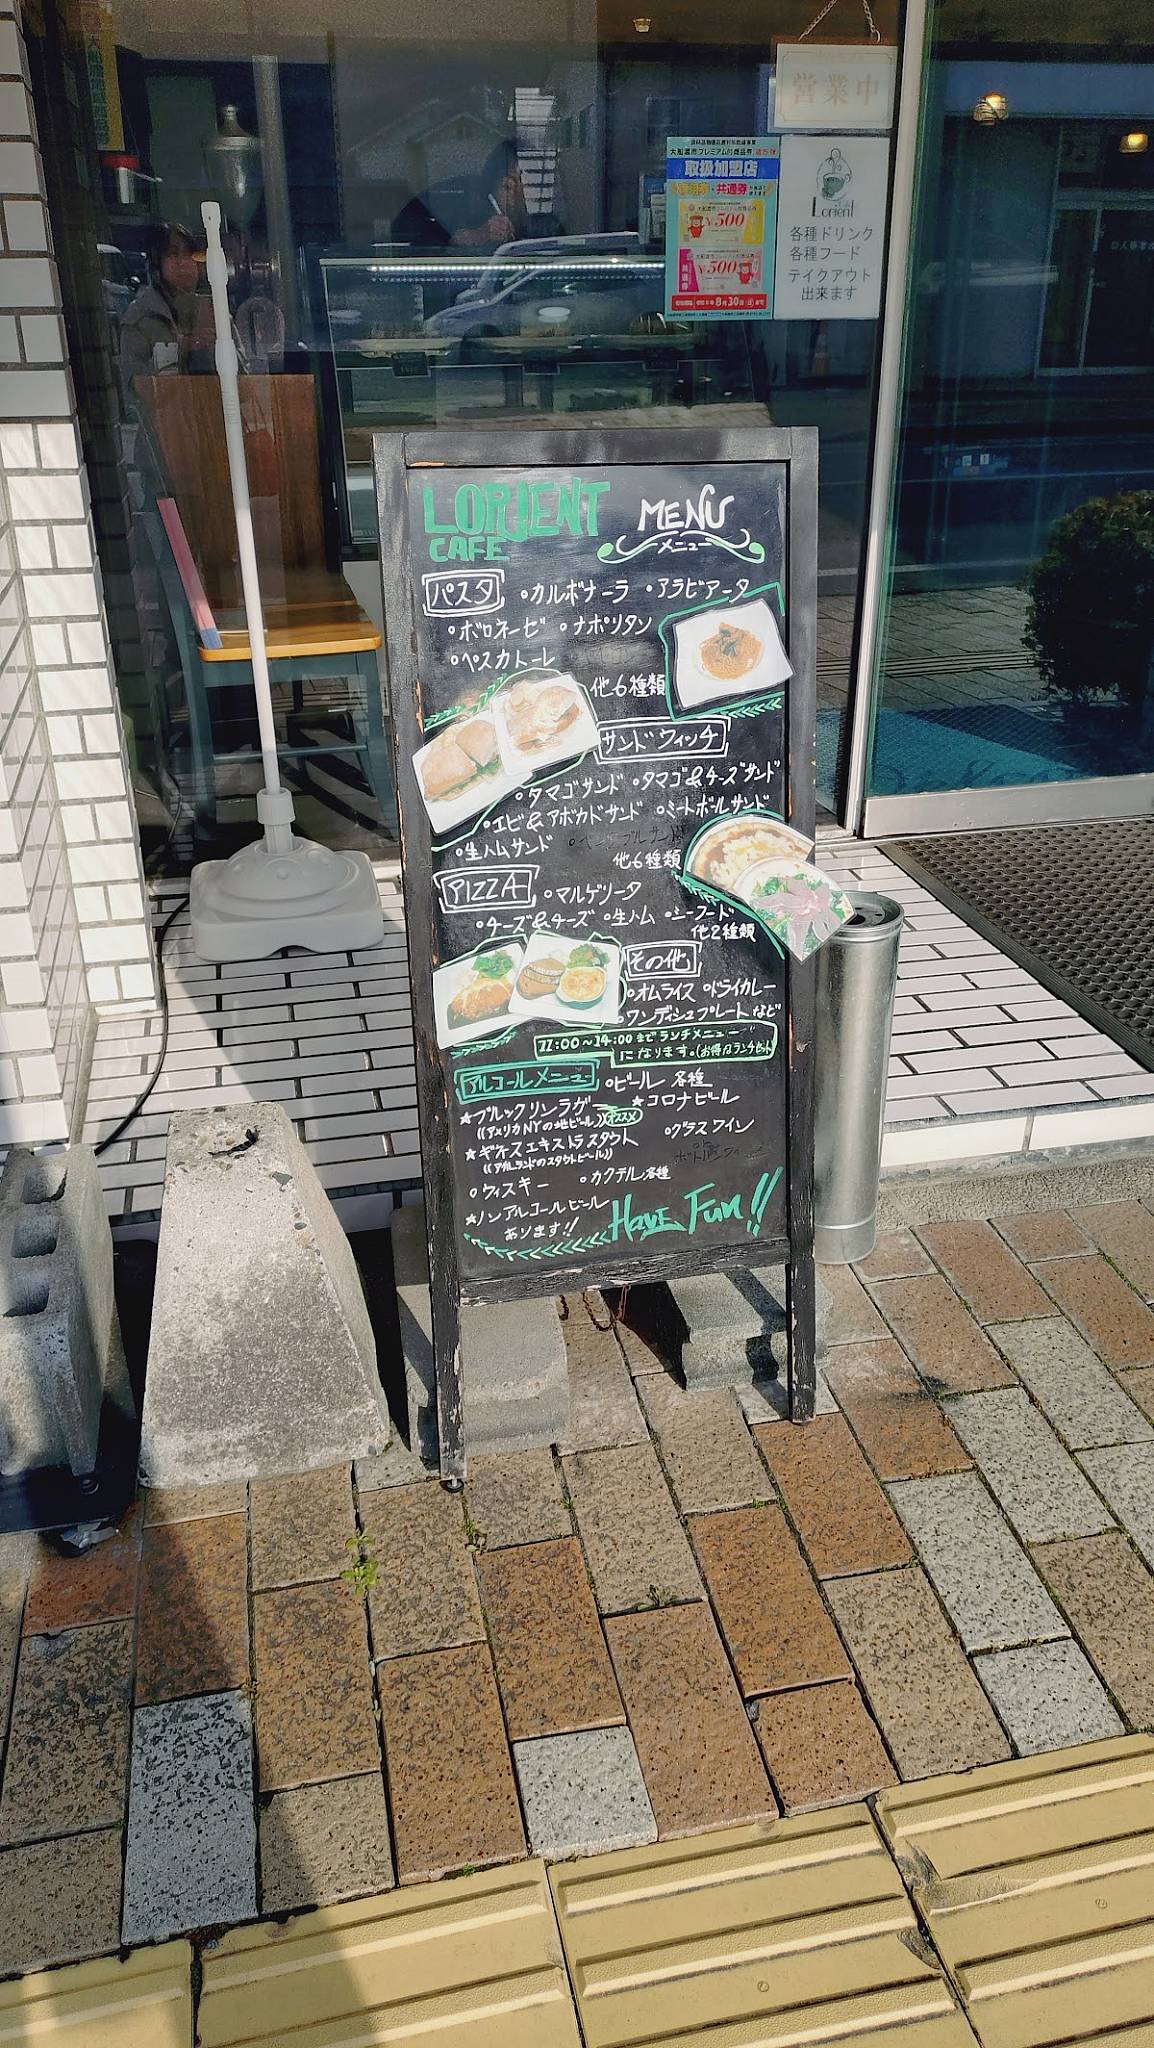 営業中
大船渡市プレミアム付商品券
取扱加盟店
共通券
¥500
共通券
¥500
8月30日
Lorient
各種ドリンク
各種フード
テイクアウト
出来ます
LORIENT
CAFE
MENU
メニュー
パスタ
・カルボナーラ ・アラビアータ
・ボロネーゼ ・ナポリタン
・ペスカトーレ
他6種類
サンドウィッチ
・タマゴサンド ・タマゴ&チーズサンド
・エビ&アボカドサンド ・ミートボールサンド
・生ハムサンド
他6種類
PIZZA
・マルゲリータ
・チーズ&チーズ ・生ハム ・シーフード
他2種類
その他
・オムライス ・ドライカレー
・ワンディシュプレート など
11:00~14:00までランチメニュー
になります。(お得なランチセット)
アルコールメニュー
・ビール 各種
★ブルックリンラガー
★コロナビール
((アメリカNYの地ビール))
オススメ
★ギネスエキストラスタウト
・グラスワイン
((アイルランドのスタウトビール))
・ウィスキー ・カクテル各種
★ノンアルコールビール
あります!!
Have Fun!!